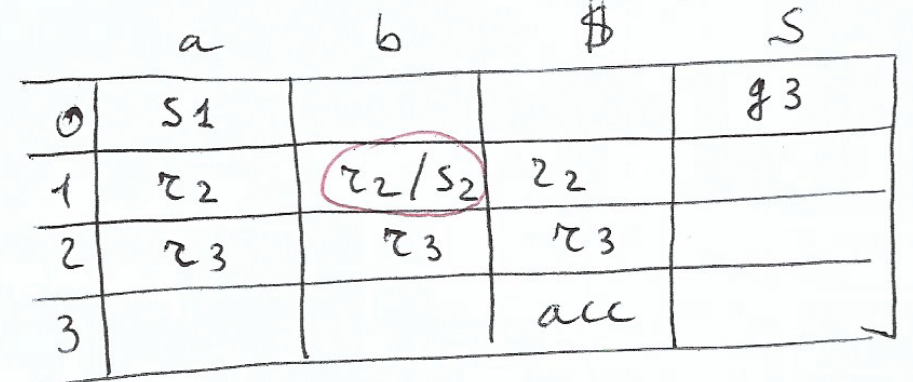 a b $ S
0 S1 g3
1 r2 r2/S2 r2
2 r3 r3 r3
3 acc